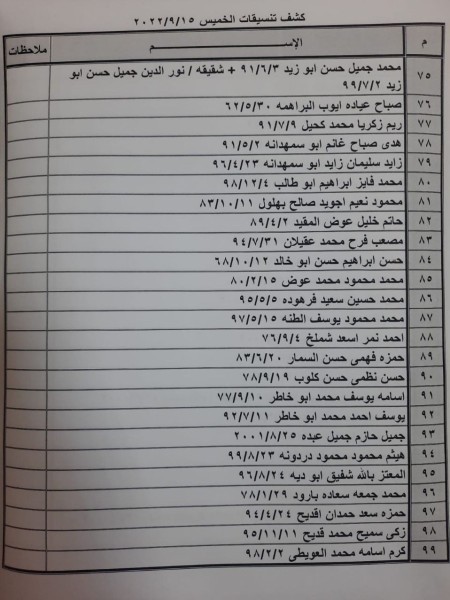 كشف تنسيقات الخميس ٢٠٢٢/٩/١٥
م الإســـــــــم ملاحظات
٧٥ محمد جميل حسن ابو زيد ٩١/٦/٣ + شقيقه / نور الدين جميل حسن ابو
زيد ٩٩/٧/٢
٧٦ صباح عياده ايوب البراهمه ٦٢/٥/٣٠
٧٧ ريم زكريا محمد كحيل ٩١/٧/٩
٧٨ هدى صباح غانم ابو سمهدانه ٩١/٥/٢
٧٩ زايد سليمان زايد ابو سمهدانه ٩٦/٤/٢٣
٨٠ محمد فايز ابراهيم ابو طالب ٩٨/١٢/٤
٨١ محمود نعيم اجويد صالح بهلول ٨٣/١٠/١١
٨٢ حاتم خليل عوض المقيد ٨٩/٤/٢
٨٣ مصعب فرح محمد عقيلان ٩٤/٧/٣١
٨٤ حسن ابراهيم حسن ابو خالد ٦٨/١٠/١٢
٨٥ محمد محمود محمد عوض ٨٠/٢/١٥
٨٦ محمد حسين سعيد فرهوده ٩٥/٥/٥
٨٧ محمد محمود يوسف الطنه ٩٧/٥/١٥
٨٨ احمد نمر اسعد شملخ ٧٦/٩/٤
٨٩ حمزه فهمى حسن السمار ٨٣/٦/٢٠
٩٠ حسن نظمى حسن كلوب ٧٨/٩/١٩
٩١ اسامه يوسف محمد ابو خاطر ٧٧/٩/١٠
٩٢ يوسف احمد محمد ابو خاطر ٩٢/٧/١١
٩٣ جميل حازم جميل عبده ٢٠٠١/٨/٢٥
٩٤ هيثم محمود محمود دردونه ٩٩/٨/٢٣
٩٥ المعتز بالله شفيق ابو ديه ٩٦/٨/٢٤
٩٦ محمد جمعه سعاده بارود ٧٨/١/٢٩
٩٧ حمزه سعد حمدان اقديح ٩٤/٤/٢٤
٩٨ زكى سميح محمد قديح ٩٥/١١/١١
٩٩ كرم اسامه محمد العويطى ٩٨/٢/٢